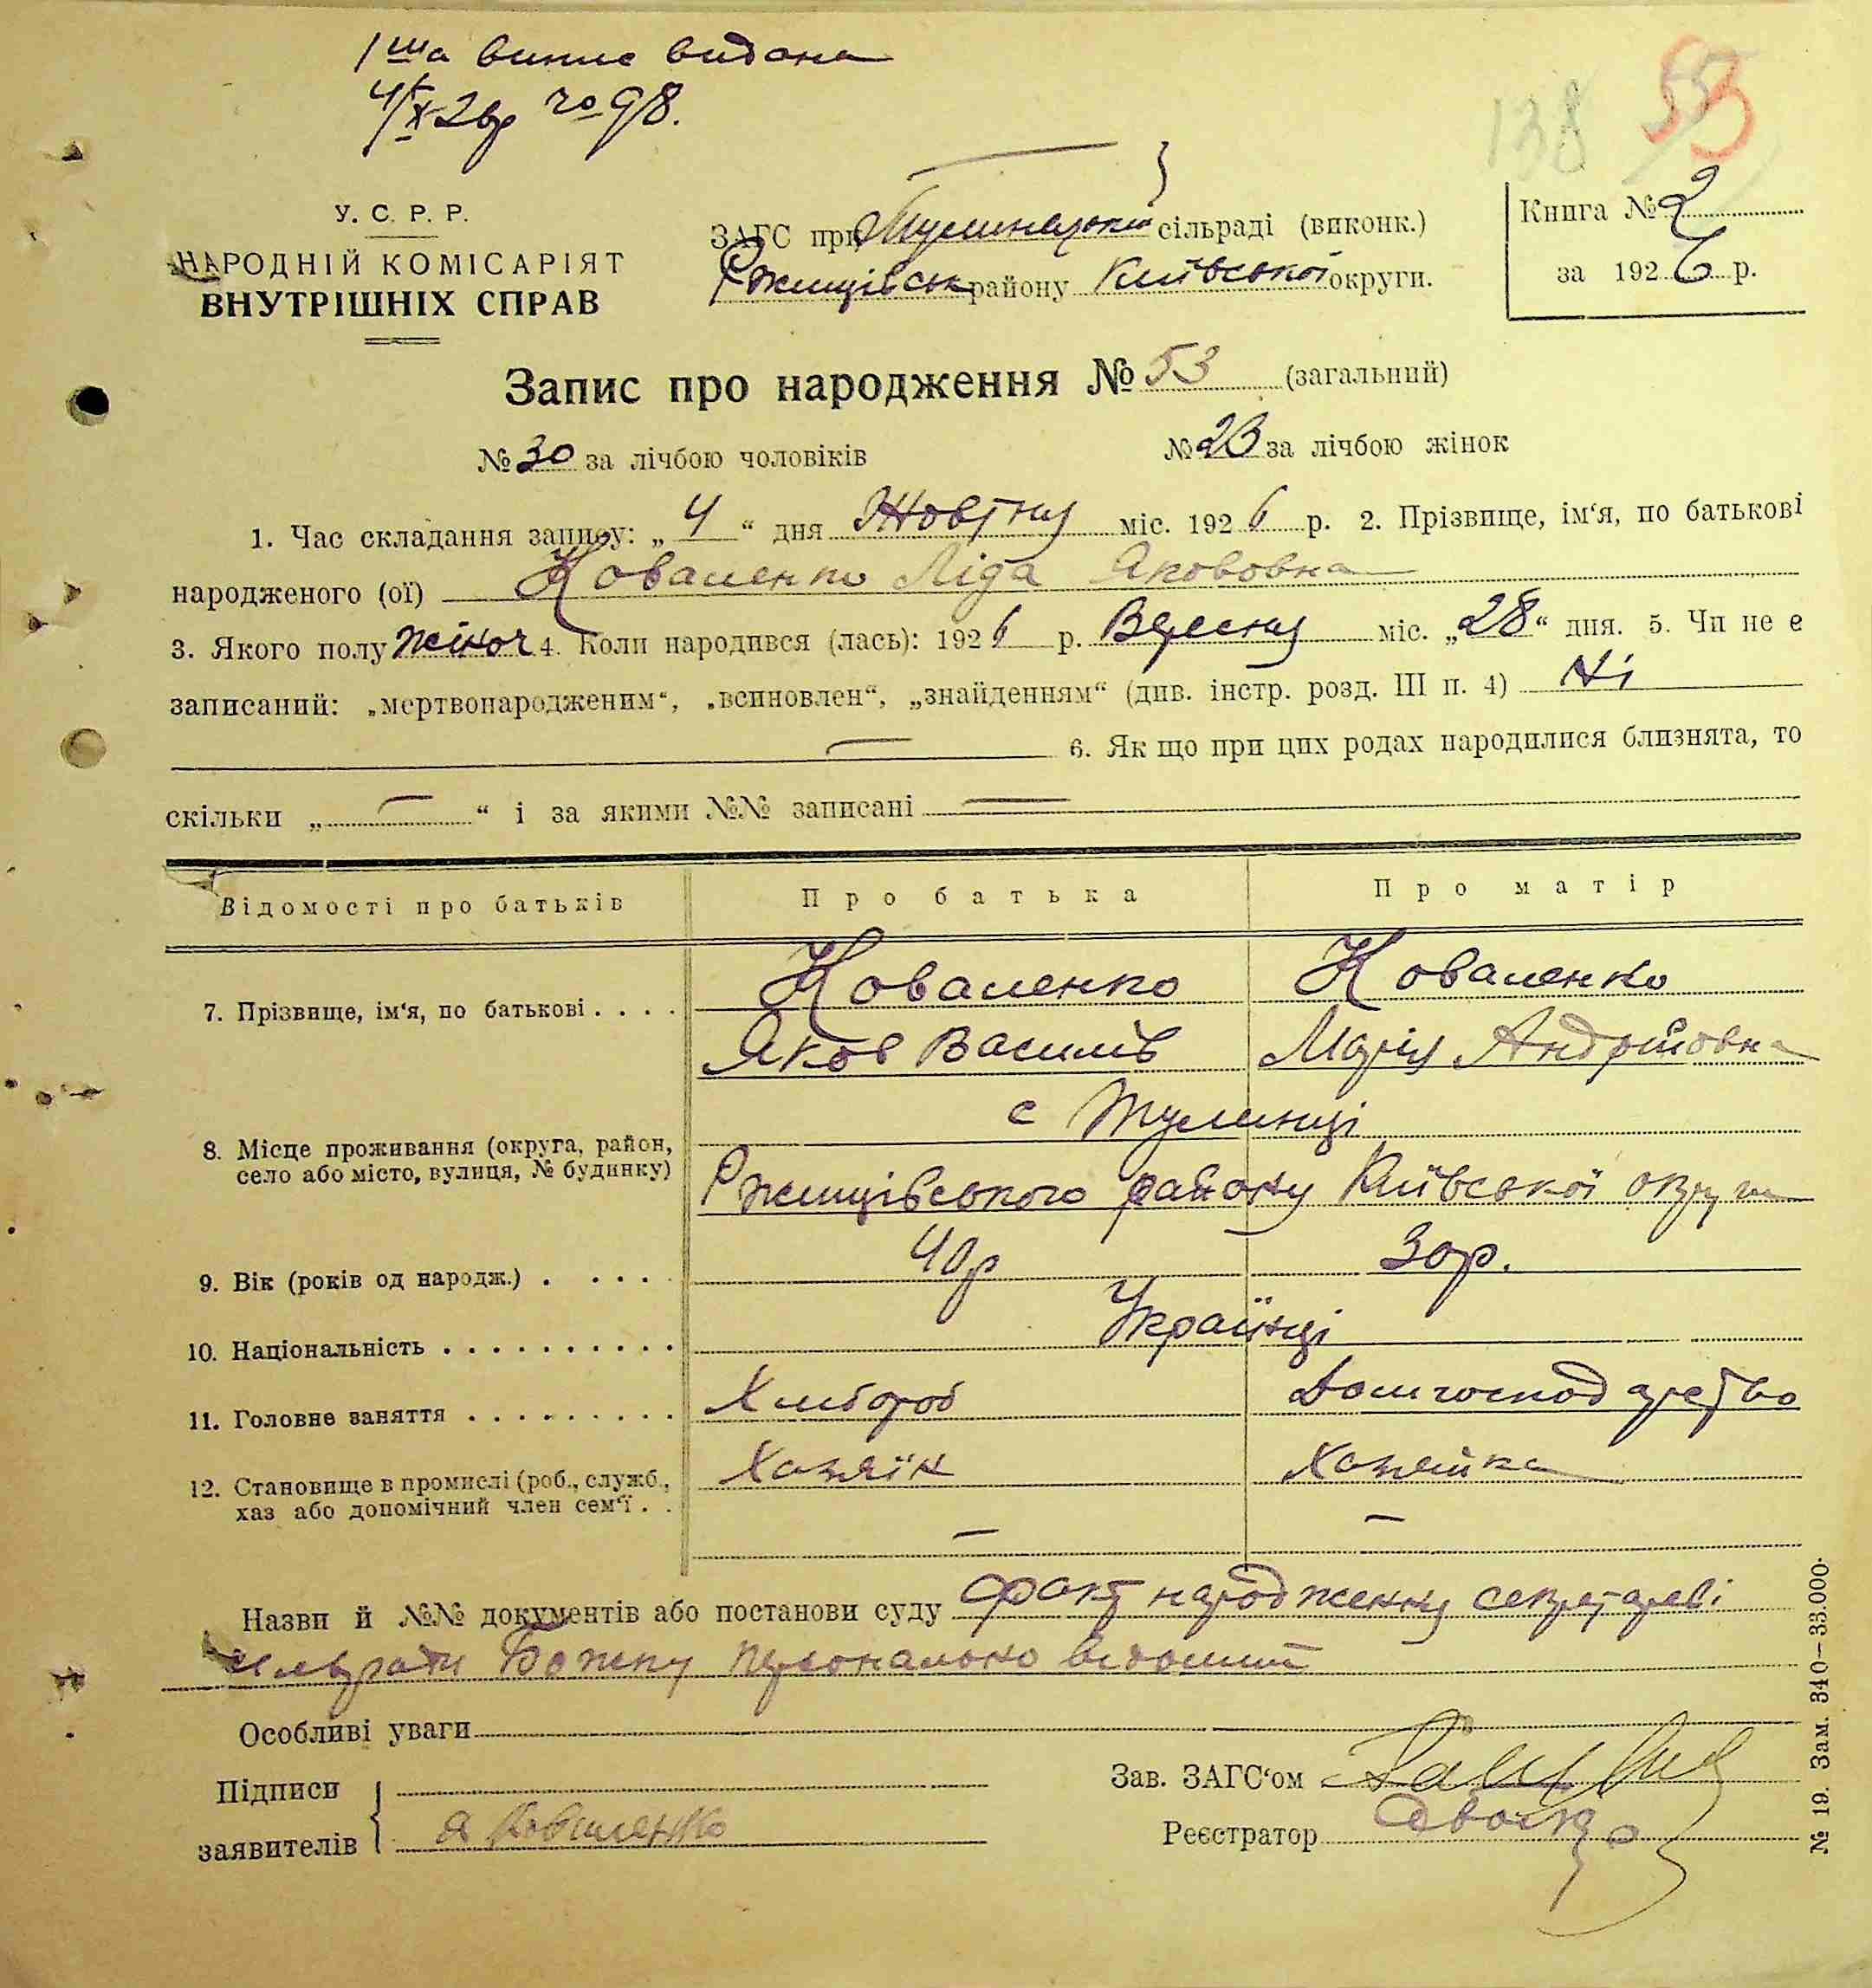 1ша випис видана
4/X 26р № 98.
138 53
У. С. Р. Р.
НАРОДНІЙ КОМІСАРІЯТ
ВНУТРІШНІХ СПРАВ
ЗАГС при Тулинській сільраді (виконк.)
Ржищівськ району Київської округи.
Книга № 2
за 1926 р.
Запис про народження № 53 (загальний)
№ 30 за лічбою чоловіків № 23 за лічбою жінок
1. Час складання запису: „ 4 “ дня Жовтня міс. 1926 р. 2. Прізвище, ім‘я, по батькові
народженого (ої) Коваленко Ліда Якововна
3. Якого полу жіноч 4. Коли народився (лась): 1926 р. Вересня міс. „28“ дня. 5. Чи не є
записаний: „мертвонародженим“, „всиновлен“, „знайденням“ (див. інстр. розд. III п. 4) Ні
— 6. Як що при цих родах народилися близнята, то
скільки „ — “ і за якими №№ записані —
Відомості про батьків Про батька Про матір
7. Прізвище, ім‘я, по батькові . . . . Коваленко Коваленко
Яков Василів Марія Андрійовна
с Тулинці
8. Місце проживання (округа, район,
село або місто, вулиця, № будинку) Ржищівського району Київської округи
9. Вік (років од народж.) . . . . . 40р 30р.
10. Національність . . . . . . . . . . Українці
11. Головне заняття . . . . . . . . . Хлібороб Домгосподарство
12. Становище в промислі (роб., служб., Хазяїн Хазяйка
хаз або допомічний член сем‘ї . .
— —
Назви й №№ документів або постанови суду Факт народження секретареві
сільради персонально відомий
Особливі уваги
Підписи
заявителів Я Коваленко
Зав. ЗАГС‘ом
Реєстратор
№ 19. Зам. 340—33.000.